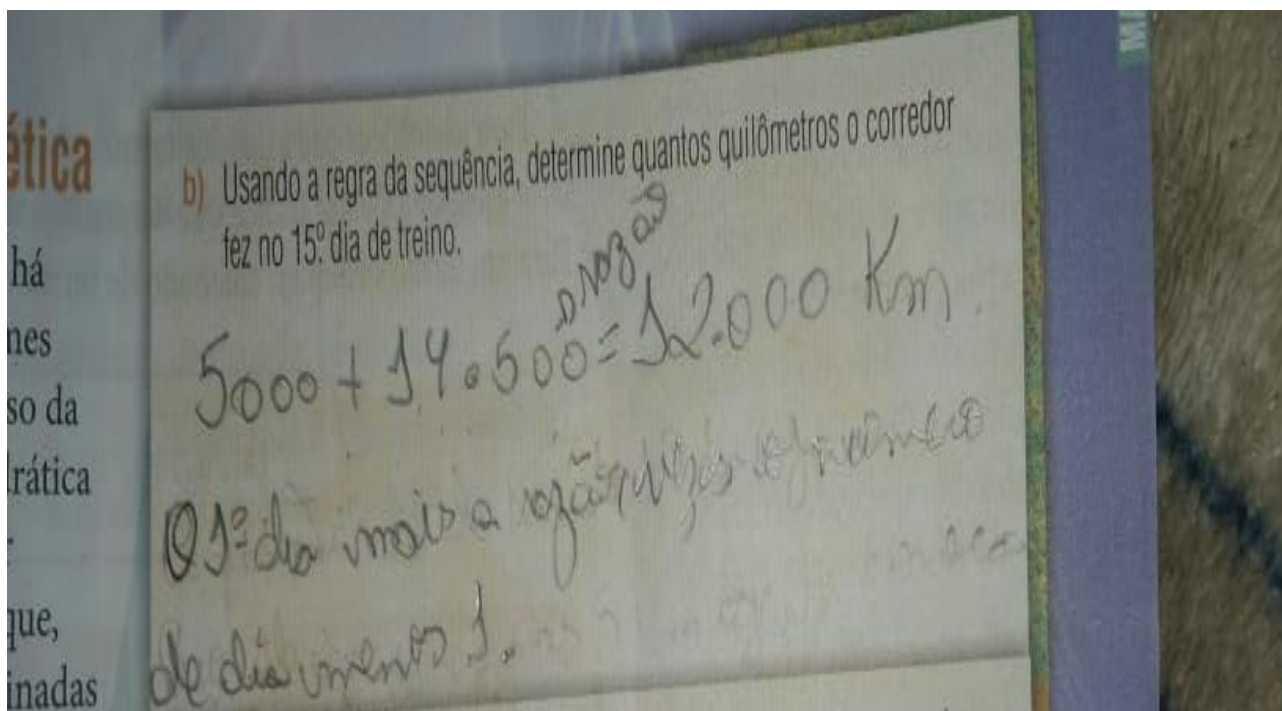 ética
há
nes
so da
rática
que,
inadas
b) Usando a regra da sequência, determine quantos quilômetros o corredor
fez no 15º dia de treino.
razão
5000 + 14.500 = 12.000 Km.
O 1º dia mais a razão vezes o número
de dia menos 1.